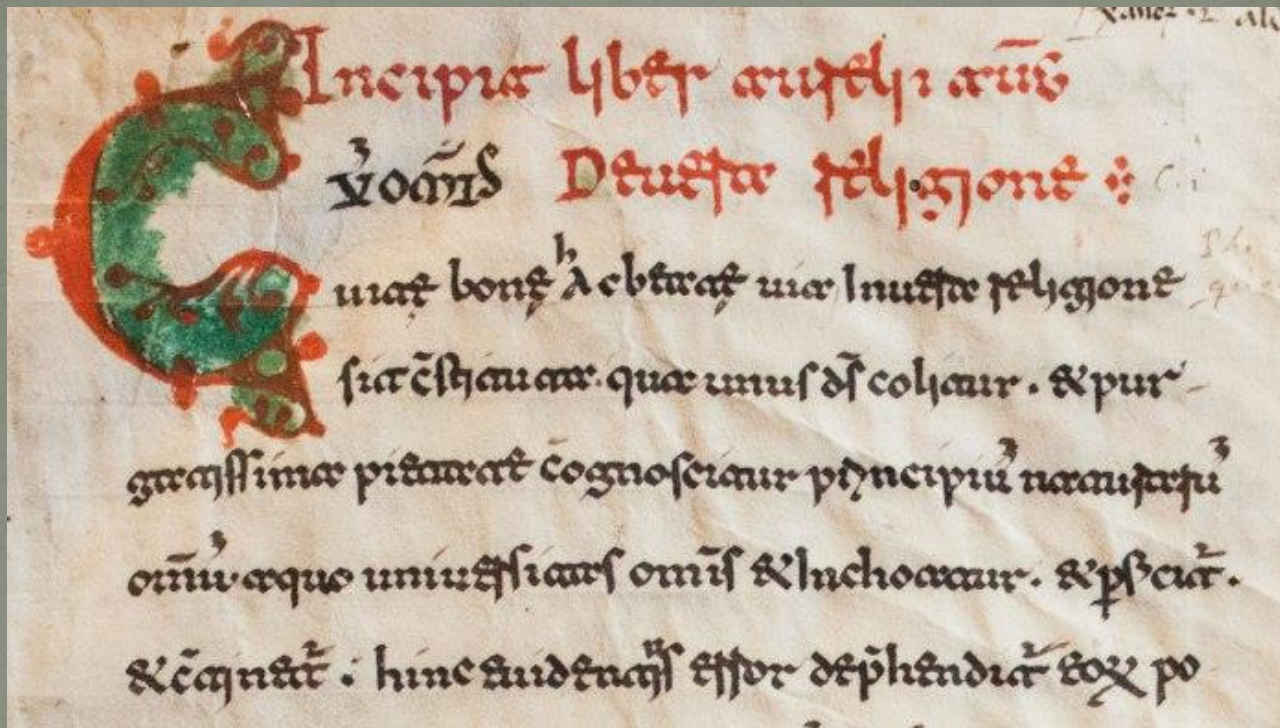 Incipit liber aurelii aūg
Cu᷃ om̄is De uera religione
uitę bonę Ac beatę uia In uera religione
sit c̄stituta. qua unus ds̄ colitur. & pur
gatissima pietate c̄ognoscitur principiu᷃ naturaru᷃
om̄iu᷃. a quo uniuersitas om̄is & Inchoatur. & p̱ficit᷃.
& c̄tinet᷃ : hinc euidentius error dep̄hendit᷃ eoꝝ po